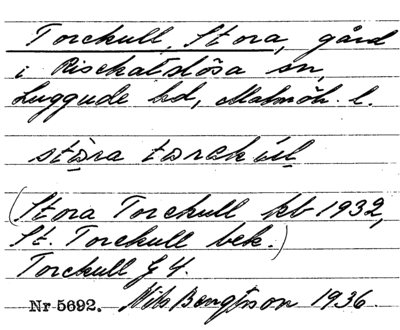 Torckull, Stora, gård
i Risekatslösa sn,
Luggude hd, Malmöh. l.
stòra tarckúl
(Stora Torckull kb 1932,
St. Torckull bek.)
Torckull G Y.
Nr 5692. Nils Bengtsson 1936